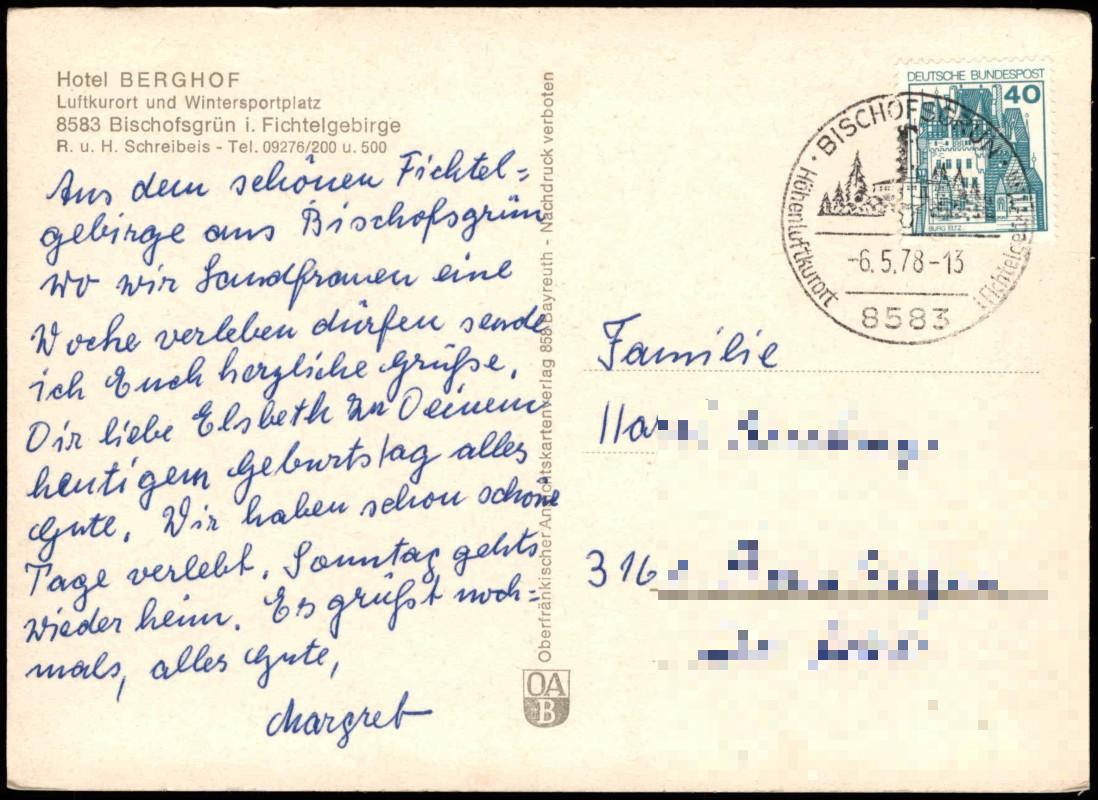 Hotel BERGHOF
Luftkurort und Wintersportplatz
8583 Bischofsgrün i. Fichtelgebirge
R. u. H. Schreibeis - Tel. 09276/200 u. 500
Aus dem schönen Fichtel=
gebirge aus Bischofsgrün
wo wir Landfrauen eine
Woche verleben dürfen sende
ich Euch herzliche Grüße.
Dir liebe Elsbeth zu Deinem
heutigem Geburtstag alles
Gute. Wir haben schon schöne
Tage verlebt. Sonntag gehts
wieder heim. Es grüßt noch=
mals, alles Gute,
Margret
Oberfränkischer Ansichtskartenverlag 858 Bayreuth - Nachdruck verboten
OA
B
DEUTSCHE BUNDESPOST
40
BURG ELTZ
BISCHOFSGRÜN
Höhenluftkurort
i. Fichtelgebirge
-6.5.78-13
8583
Familie
316